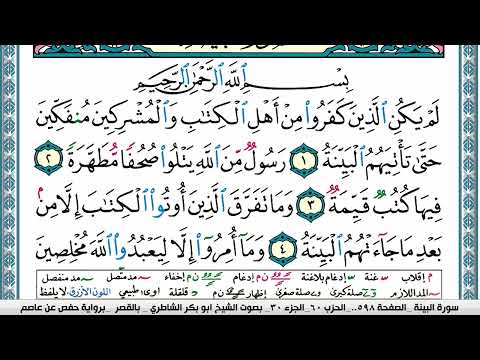 بِسْمِ ٱللَّهِ ٱلرَّحْمَٰنِ ٱلرَّحِيمِ
لَمْ يَكُنِ ٱلَّذِينَ كَفَرُوا۟ مِنْ أَهْلِ ٱلْكِتَٰبِ وَٱلْمُشْرِكِينَ مُنفَكِّينَ
حَتَّىٰ تَأْتِيَهُمُ ٱلْبَيِّنَةُ ١ رَسُولٌ مِّنَ ٱللَّهِ يَتْلُوا۟ صُحُفًا مُّطَهَّرَةً ٢
فِيهَا كُتُبٌ قَيِّمَةٌ ٣ وَمَا تَفَرَّقَ ٱلَّذِينَ أُوتُوا۟ ٱلْكِتَٰبَ إِلَّا مِنۢ
بَعْدِ مَا جَآءَتْهُمُ ٱلْبَيِّنَةُ ٤ وَمَآ أُمِرُوٓا۟ إِلَّا لِيَعْبُدُوا۟ ٱللَّهَ مُخْلِصِينَ
م إقلاب غنة إدغام بلاغنة ن م إدغام ن م إخفاء مد متصل مد منفصل
المد اللازم صلة كبرى صلة صغرى إظهار ن م قلقلة اوى طبيعي اللون الأزرق لا يلفظ
سورة البينة _ الصفحة ٥٩٨ _ الحزب ٦٠ _ الجزء ٣٠ _ بصوت الشيخ ابو بكر الشاطري _ بالقصر _ برواية حفص عن عاصم